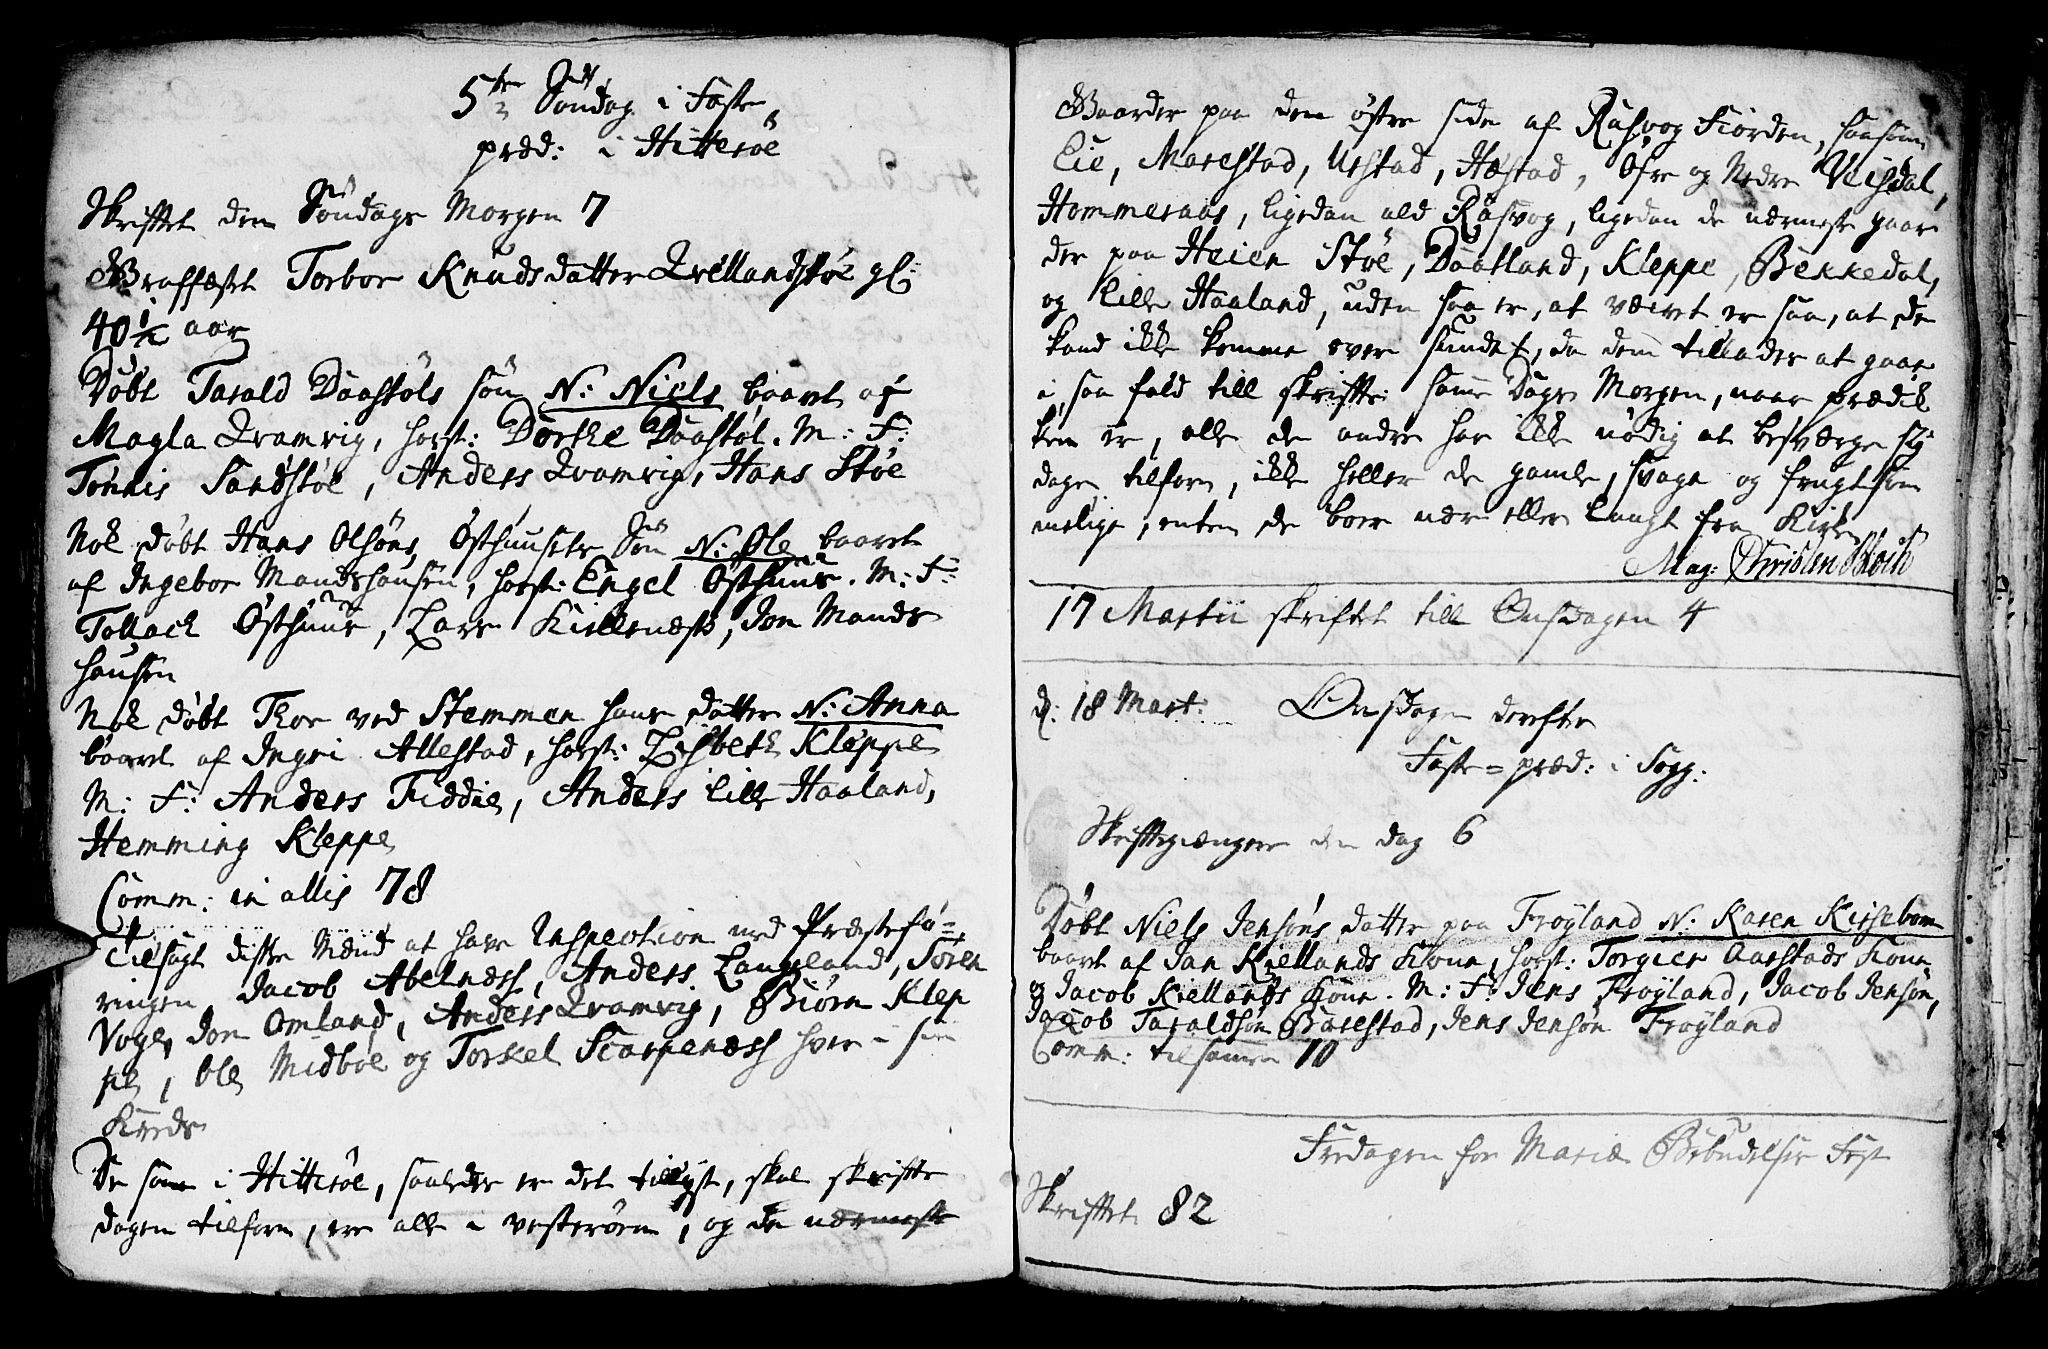 5te Søndag i Faste
præd: i Hitterøe
Skriftet den Søndags Morgen 7
Graffæst Torbor Knudsdatter Qvellandstøe gl:
40 1/2 aar
Døbt Tarald Daastøls søn N: Niels baaret af
Magla Qvamvig, horst: Dorthe Daastøl. M: F:
Tønnis Sandstøe, Anders Qvamvig, Hans Støe
Nok døbt Hans Olsøns Østhuuses Søn N: Ole baaret
af Ingebor Mandshausen, horst: Engel Østhuus. M: F:
Tollack Østhuus, Lars Kiellenæss, Jon Mands
hausen
Nok døbt Thor ved Stemmen hans datter N: Anna
baaret af Ingri Allestad, horst: Lisbeth Kleppe
M: F: Anders Fiddie, Anders Lille Haaland,
Hemming Kleppe
Comm: in allis 78
Tilsagt diste Mænd at have Inspection med Præstefø=
ringen Jacob Abelnæss, Anders Langeland, Søren
Voge, Jon Omland, Anders Qvamvig, Biørn Klep
pe, Ole Midboe og Torkel Skarpenæss hver i sin
Kreds
De som i Hitterøe, saaledes er det tillyst, skal skrifte
dagen tilforn, ere alle i vesterøen, og de nærmeste
Gaarder paa den østre side af Rasvog Fiorden, saasom
Eie, Marestad, Urstad, Hæstad, Øfre og Nedre Veisdal,
Hommeraas, ligedan ald Rasvog, ligedan de nærmeste gaar
der paa Heien Støe, Daatland, Kleppe, Bekkedal,
og Lille Haaland, uden saa er, at væiret er saa, at de
kand ikke komme over sundet, da dem tillades at gaae
i saa fald till skrifte samme Dags Morgen, naar prædik
ken er, alle de andre har ikke nødig at besværge sig
dagen tilforn, ikke heller de gamle, svage og frugtsom
melige, enten de boer nær eller langt fra Kirken
Mag: Christen
17 Martii skriftet till Onsdagen 4
d: 18 Mart: Onsdagen derefter
Faste=præd: i Sogg:
Skriftegiængere den dag 6
Døbt Niels Jensøns datter paa Frøyland N: Karen Kirsebom
baaret af Jan Kiellands Kone, horst: Torgier Aarstads Kone
og Jacob Kiellands Kone. M: F: Jens Frøyland, Jacob Jensøn,
Jacob Taraldsøn Barestad, Jens Jensøn Frøyland
Comm: tilsamen 10
Fredagen for Mariæ Bebudelses Fest
Skriftet 82